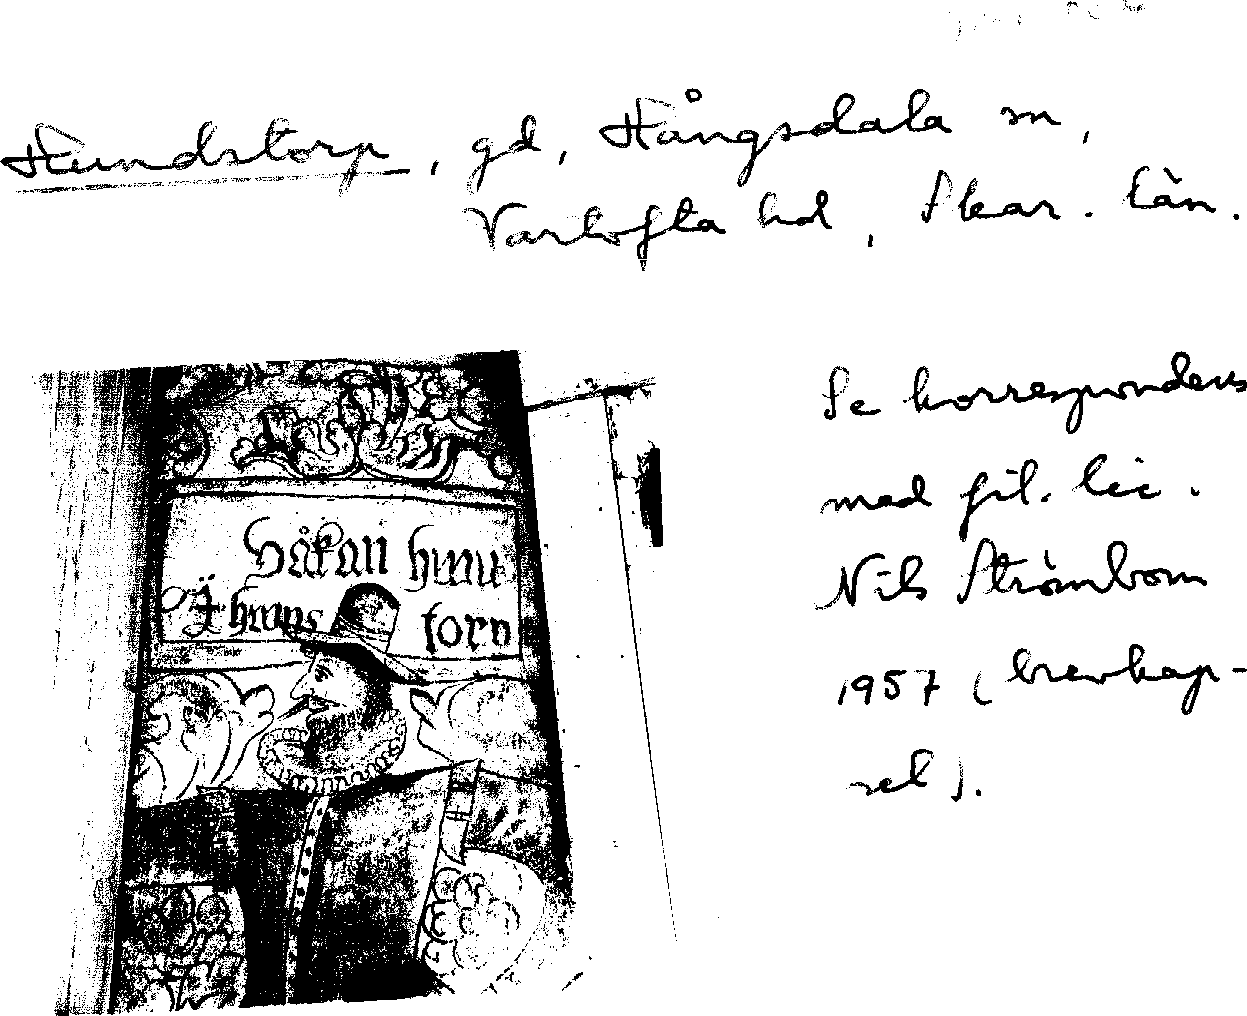 Hundstorp, gd, Hångsdala sn,
Vartofta hd, Skar. län.
Se korrespondens
med fil. lic.
Nils Strömbom
1957 (brevkap-
sel).
Håkan
torp